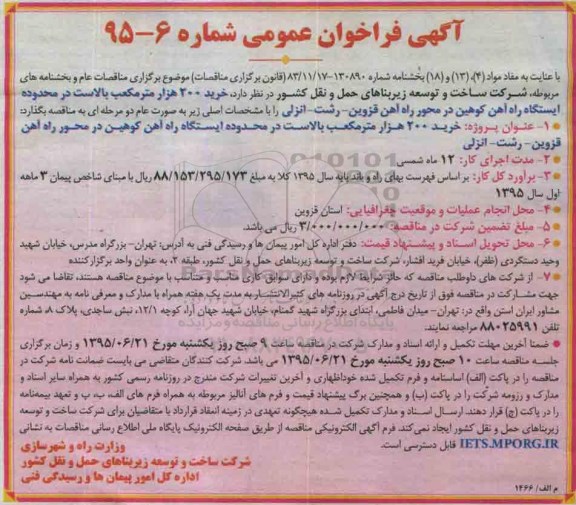 آگهی فراخوان عمومی شماره ۶-۹۵
با عنایت به مفاد مواد (۴)، (۱۳) و (۱۸) بخشنامه شماره ۱۳۰۸۹۰-۸۳/۱۱/۱۷ (قانون برگزاری مناقصات) موضوع برگزاری مناقصات عام و بخشنامه های
مربوطه، شرکت ساخت و توسعه زیربناهای حمل و نقل کشور در نظر دارد، خرید ۲۰۰ هزار مترمکعب بالاست در محدوده
ایستگاه راه آهن کوهین در محور راه آهن قزوین- رشت- انزلی را با مشخصات اصلی زیر به صورت عام دو مرحله ای به مناقصه بگذارد:
۱- عنوان پروژه: خرید ۲۰۰ هزار مترمکعب بالاست در محدوده ایستگاه راه آهن کوهین در محور راه آهن
قزوین- رشت- انزلی
۲- مدت اجرای کار: ۱۲ ماه شمسی
۳- برآورد کل کار: بر اساس فهرست بهای راه و باند پایه سال ۱۳۹۵ کلا به مبلغ ۸۸/۱۵۳/۲۹۵/۱۷۳ ریال با مبنای شاخص پیمان ۳ ماهه
اول سال ۱۳۹۵
۴- محل انجام عملیات و موقعیت جغرافیایی: استان قزوین
۵- مبلغ تضمین شرکت در مناقصه: ۳/۰۰۰/۰۰۰/۰۰۰ ریال می باشد.
۶- محل تحویل اسناد و پیشنهاد قیمت: دفتر اداره کل امور پیمان ها و رسیدگی فنی به آدرس: تهران- بزرگراه مدرس، خیابان شهید
وحید دستگردی (ظفر)، خیابان فرید افشار، شرکت ساخت و توسعه زیربناهای حمل و نقل کشور، طبقه ۲، به عنوان واحد برگزارکننده
۷- از شرکت های داوطلب مناقصه که حائز شرایط لازم بوده و دارای سوابق کاری مناسب و متناسب با موضوع مناقصه هستند، تقاضا می شود
جهت مشارکت در مناقصه فوق از تاریخ درج آگهی در روزنامه های کثیرالانتشار به مدت یک هفته همراه با مدارک و معرفی نامه به مهندسین
مشاور ایران استن واقع در: تهران- میدان فاطمی، ابتدای بزرگراه شهید گمنام، خیابان شهید جهان آرا، کوچه ۱۲/۱، نبش ساجدی، پلاک ۸، شماره
تلفن ۸۸۰۲۵۹۹۱ مراجعه نمایند.
ضمنا آخرین مهلت تکمیل و ارائه اسناد و مدارک شرکت در مناقصه ساعت ۹ صبح روز یکشنبه مورخ ۱۳۹۵/۰۶/۲۱ و زمان برگزاری
جلسه مناقصه ساعت ۱۰ صبح روز یکشنبه مورخ ۱۳۹۵/۰۶/۲۱ می باشد. شرکت کنندگان متقاضی می بایست ضمانت نامه شرکت در
مناقصه را در پاکت (الف) اساسنامه و فرم تکمیل شده خوداظهاری و آخرین تغییرات شرکت مندرج در روزنامه رسمی کشور به همراه سایر اسناد و
مدارک و رزومه شرکت را در پاکت (ب) و همچنین برگ پیشنهاد قیمت و فرم های آنالیز مربوطه به همراه فرم های الف، ب، پ و تعهد بیمه‌نامه
را در پاکت (ج) قرار دهند. ارسال اسناد و مدارک تکمیل شده هیچگونه تعهدی در زمینه انعقاد قرارداد با متقاضیان برای شرکت ساخت و توسعه
زیربناهای حمل و نقل کشور ایجاد نمی کند. فرم آگهی الکترونیکی مناقصه از طریق صفحه الکترونیک پایگاه ملی اطلاع رسانی مناقصات به نشانی
IETS.MPORG.IR قابل دسترسی است.
وزارت راه و شهرسازی
شرکت ساخت و توسعه زیربناهای حمل و نقل کشور
اداره کل امور پیمان ها و رسیدگی فنی
م الف/ ۱۴۶۶